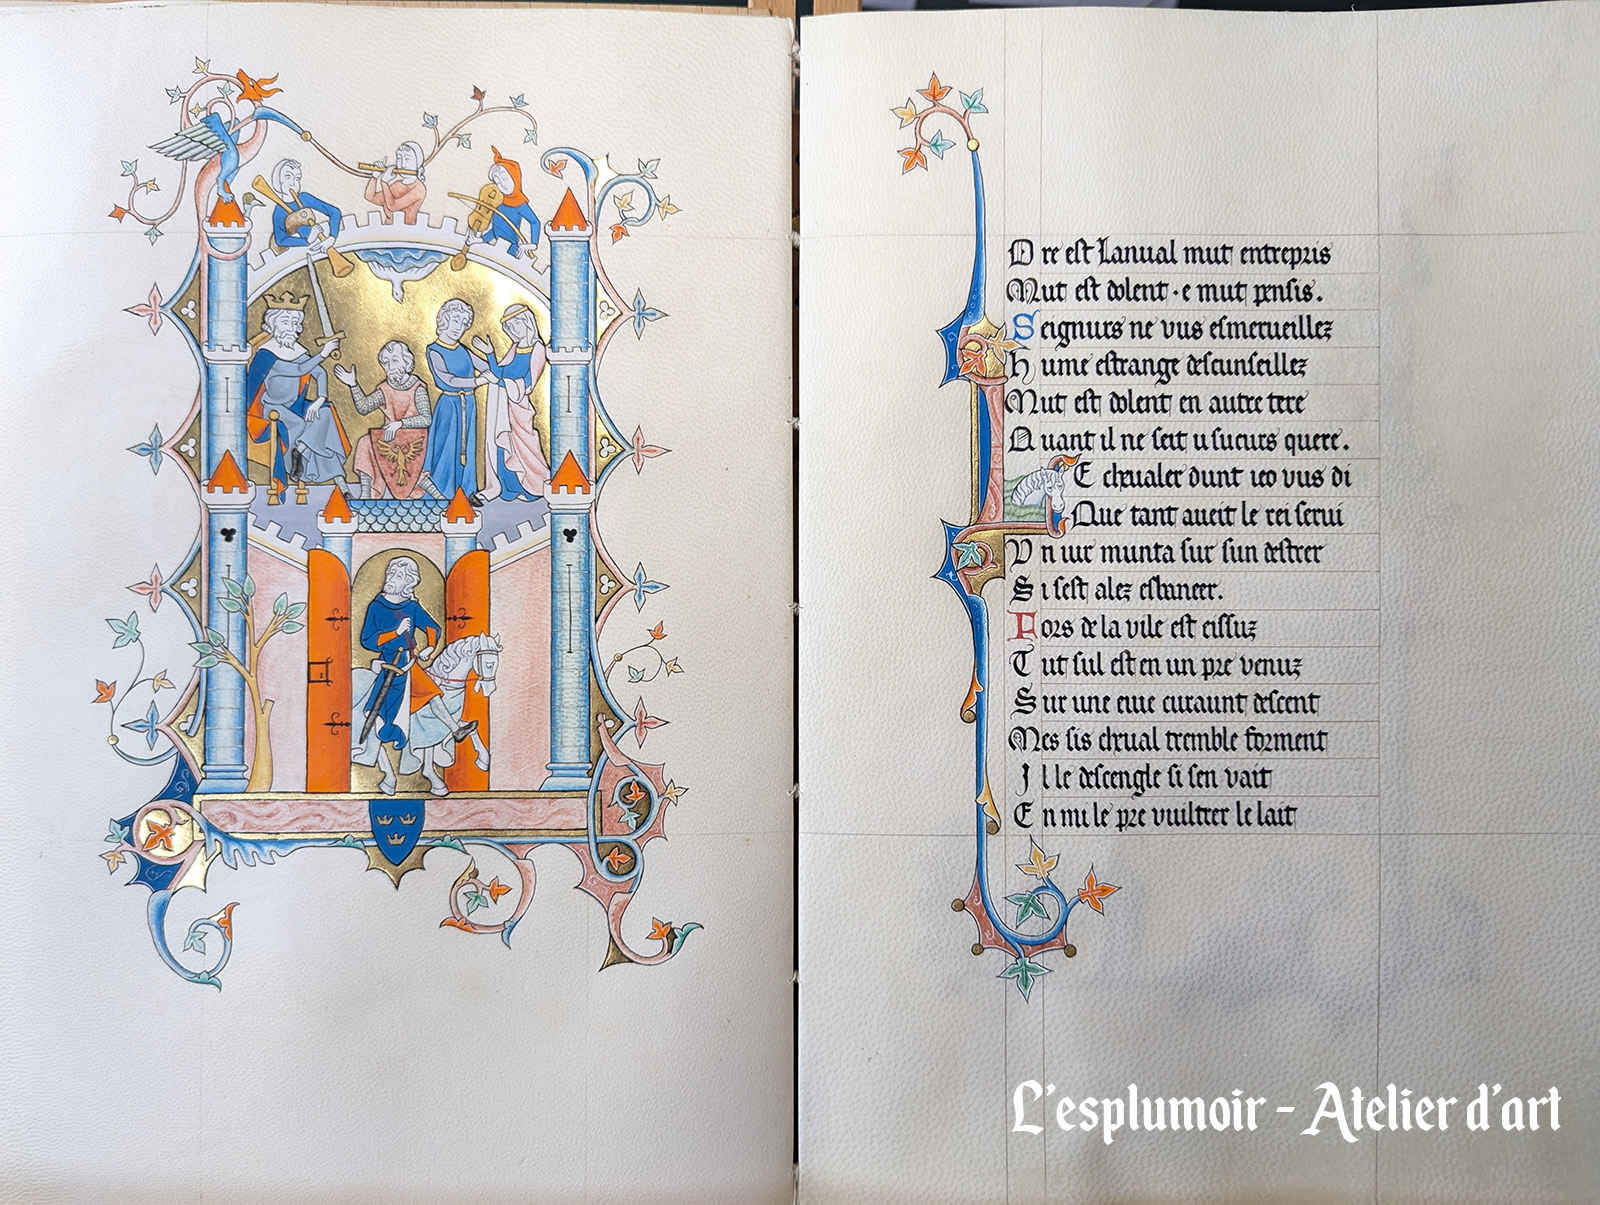 O re est Lanual mut entrepris
Mut est dolent · e mut pensis.
Seignurs ne vus esmerueillez
h ume estrange descunseillez
Mut est dolent en autre tere
Q uant il ne seit u sucurs quere.
L E cheualer dunt ieo vus di
Que tant aueit le rei serui
V n iur munta sur sun destrer
S i sest alez esbaneer.
F ors de la vile est eissuz
T ut sul est en un pre venuz
S ur une ewe curaunt descent
Mes sis cheual tremble forment
I l le descengle si sen vait
E n mi le pre vuiltrer le lait
L'esplumoir - Atelier d'art